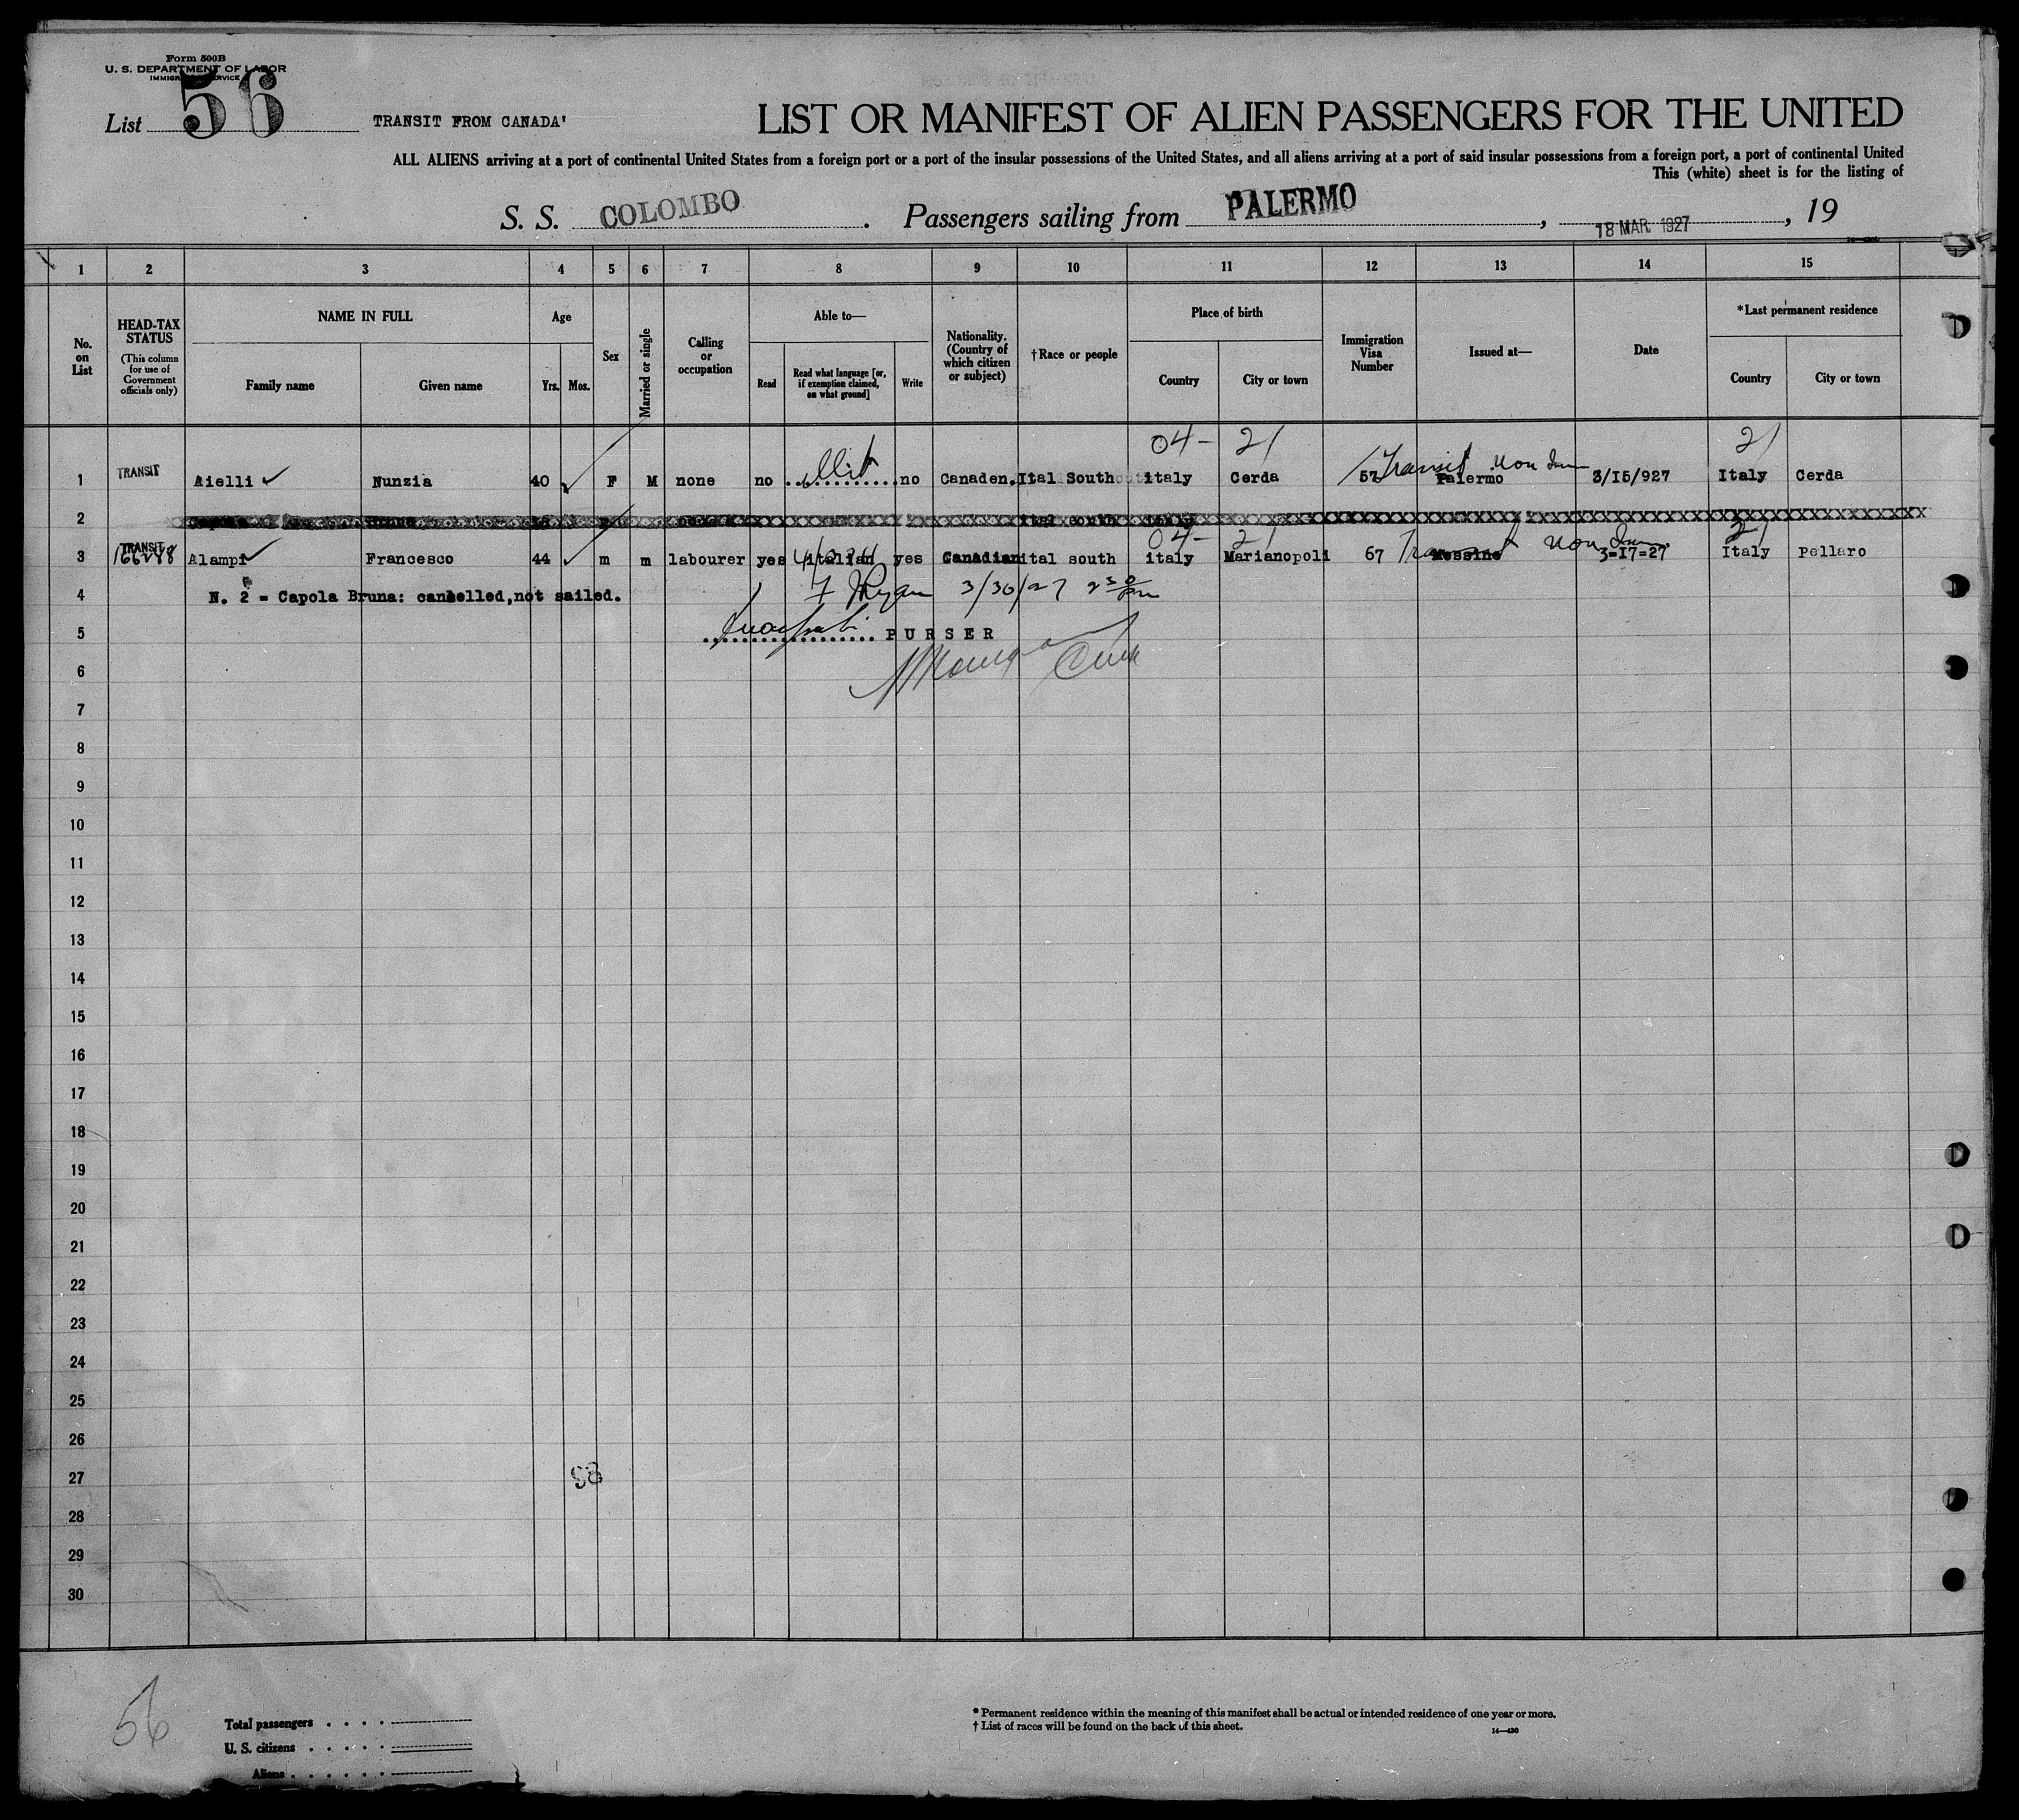 Form 500B
U. S. DEPARTMENT OF LABOR
IMMIGRATION SERVICE
List 56 TRANSIT FROM CANADA'
LIST OR MANIFEST OF ALIEN PASSENGERS FOR THE UNITED
ALL ALIENS arriving at a port of continental United States from a foreign port or a port of the insular possessions of the United States, and all aliens arriving at a port of said insular possessions from a foreign port, a port of continental United
This (white) sheet is for the listing of
S. S. COLOMBO . Passengers sailing from PALERMO , 18 MAR 1927 , 19
1 2 3 4 5 6 7 8 9 10 11 12 13 14 15
No. on List
HEAD-TAX STATUS
(This column for use of Government officials only)
NAME IN FULL
Family name Given name
Age
Yrs. Mos.
Sex
Married or single
Calling or occupation
Able to—
Read Read what language [or, if exemption claimed, on what ground] Write
Nationality. (Country of which citizen or subject)
†Race or people
Place of birth
Country City or town
Immigration Visa Number
Issued at—
Date
*Last permanent residence
Country City or town
04- 21 21
1 TRANSIT Aielli Nunzia 40 F M none no no Canaden. Ital South italy Cerda 57 Transit Palermo 3/15/927 Italy Cerda
2 ital south italy
04- 21 21
3 TRANSIT 166288 Alampi Francesco 44 m m labourer yes italian yes Canadian ital south italy Marianopoli 67 Messine 3-17=27 Italy Pellaro
4 N. 2 = Capola Bruna: canbelled,not sailed. 3/30/27 2 30 pm
5 PURSER
6
7
8
9
10
11
12
13
14
15
16
17
18
19
20
21
22
23
24
25
26
27 58
28
29
30
56
Total passengers . . . .
U. S. citizens . . . . .
Aliens . . . . . .
* Permanent residence within the meaning of this manifest shall be actual or intended residence of one year or more.
† List of races will be found on the back of this sheet.
14—430